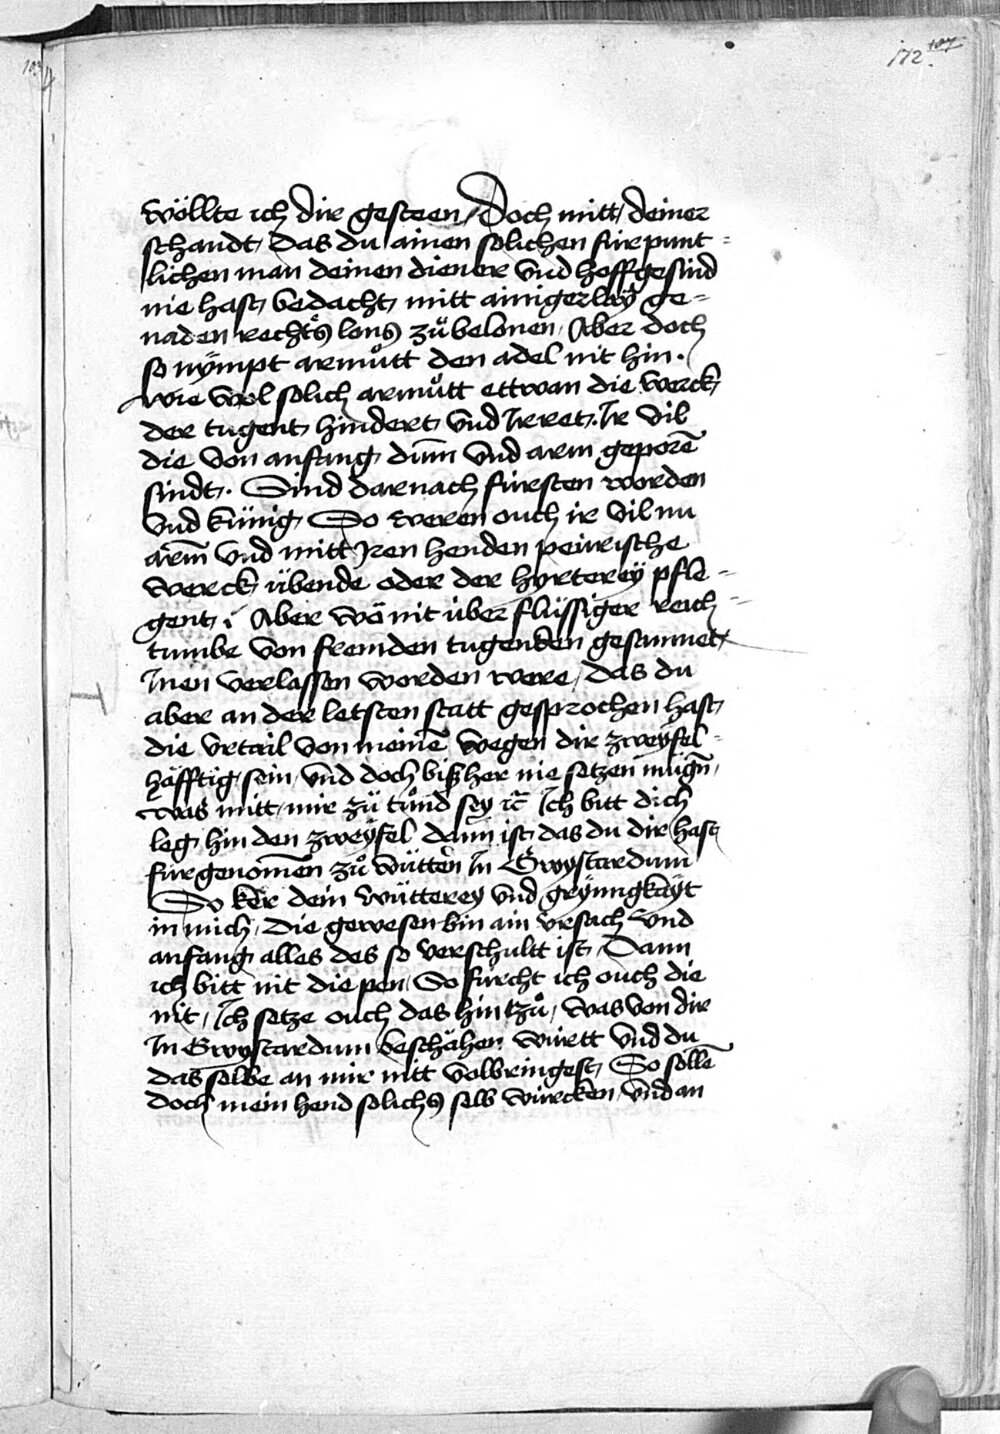 172. 107
103
wöllte ich dir gesteen / Doch mitt deiner
schandt, das du ainen solichen fürpunt=
lichen man deinen diener vnd hoffgesind
nie hast bedacht, mitt ainigerlaÿ ge=
naden rechts lons zů belonen, Aber doch
so nÿmpt armůtt den adel nit hin.
wie wol solich armůtt ettwan die werck
der tugent hindert vnd Irret. Ir vil
die von anfang dūm vnd arm geporē
sindt. Sind darnach fürsten worden
vnd künig, So weren ouch ir vil nu
arm̄ vnd mitt Iren henden peürische
werck übende oder der hyrtereÿ pfle=
gent. Aber wō nit über flüssiger reich=
tumbe von fremden tugenden gesammet
Inen verlassen worden were / das du
aber an der letsten statt gesprochen hast
die vrtail von meinē wegen dir zweÿfel=
häfftig sein, vnd doch bißher nie setzen mügn̄,
was mitt mir zů tůnd seÿ ꝛc̄ Ich bitt dich
leg hin den zweÿfel dann ist das du dir hast
fürgenom̄en zů wütten In Gwystardum
So ker dein wütterey vnd grÿmigkäyt
in mich, die gewesen bin ain vrsach vnd
anfang alles des so verschultt ist, Dann
ich bitt nit die pen, So fürcht ich ouch die
nit, Ich setze ouch das hintzů, was von dir
In Gwystardum beschähen wirett vnd du
das selbe an mir nitt volbringest, So sollē
doch mein hend solichs selb würcken, vnd an